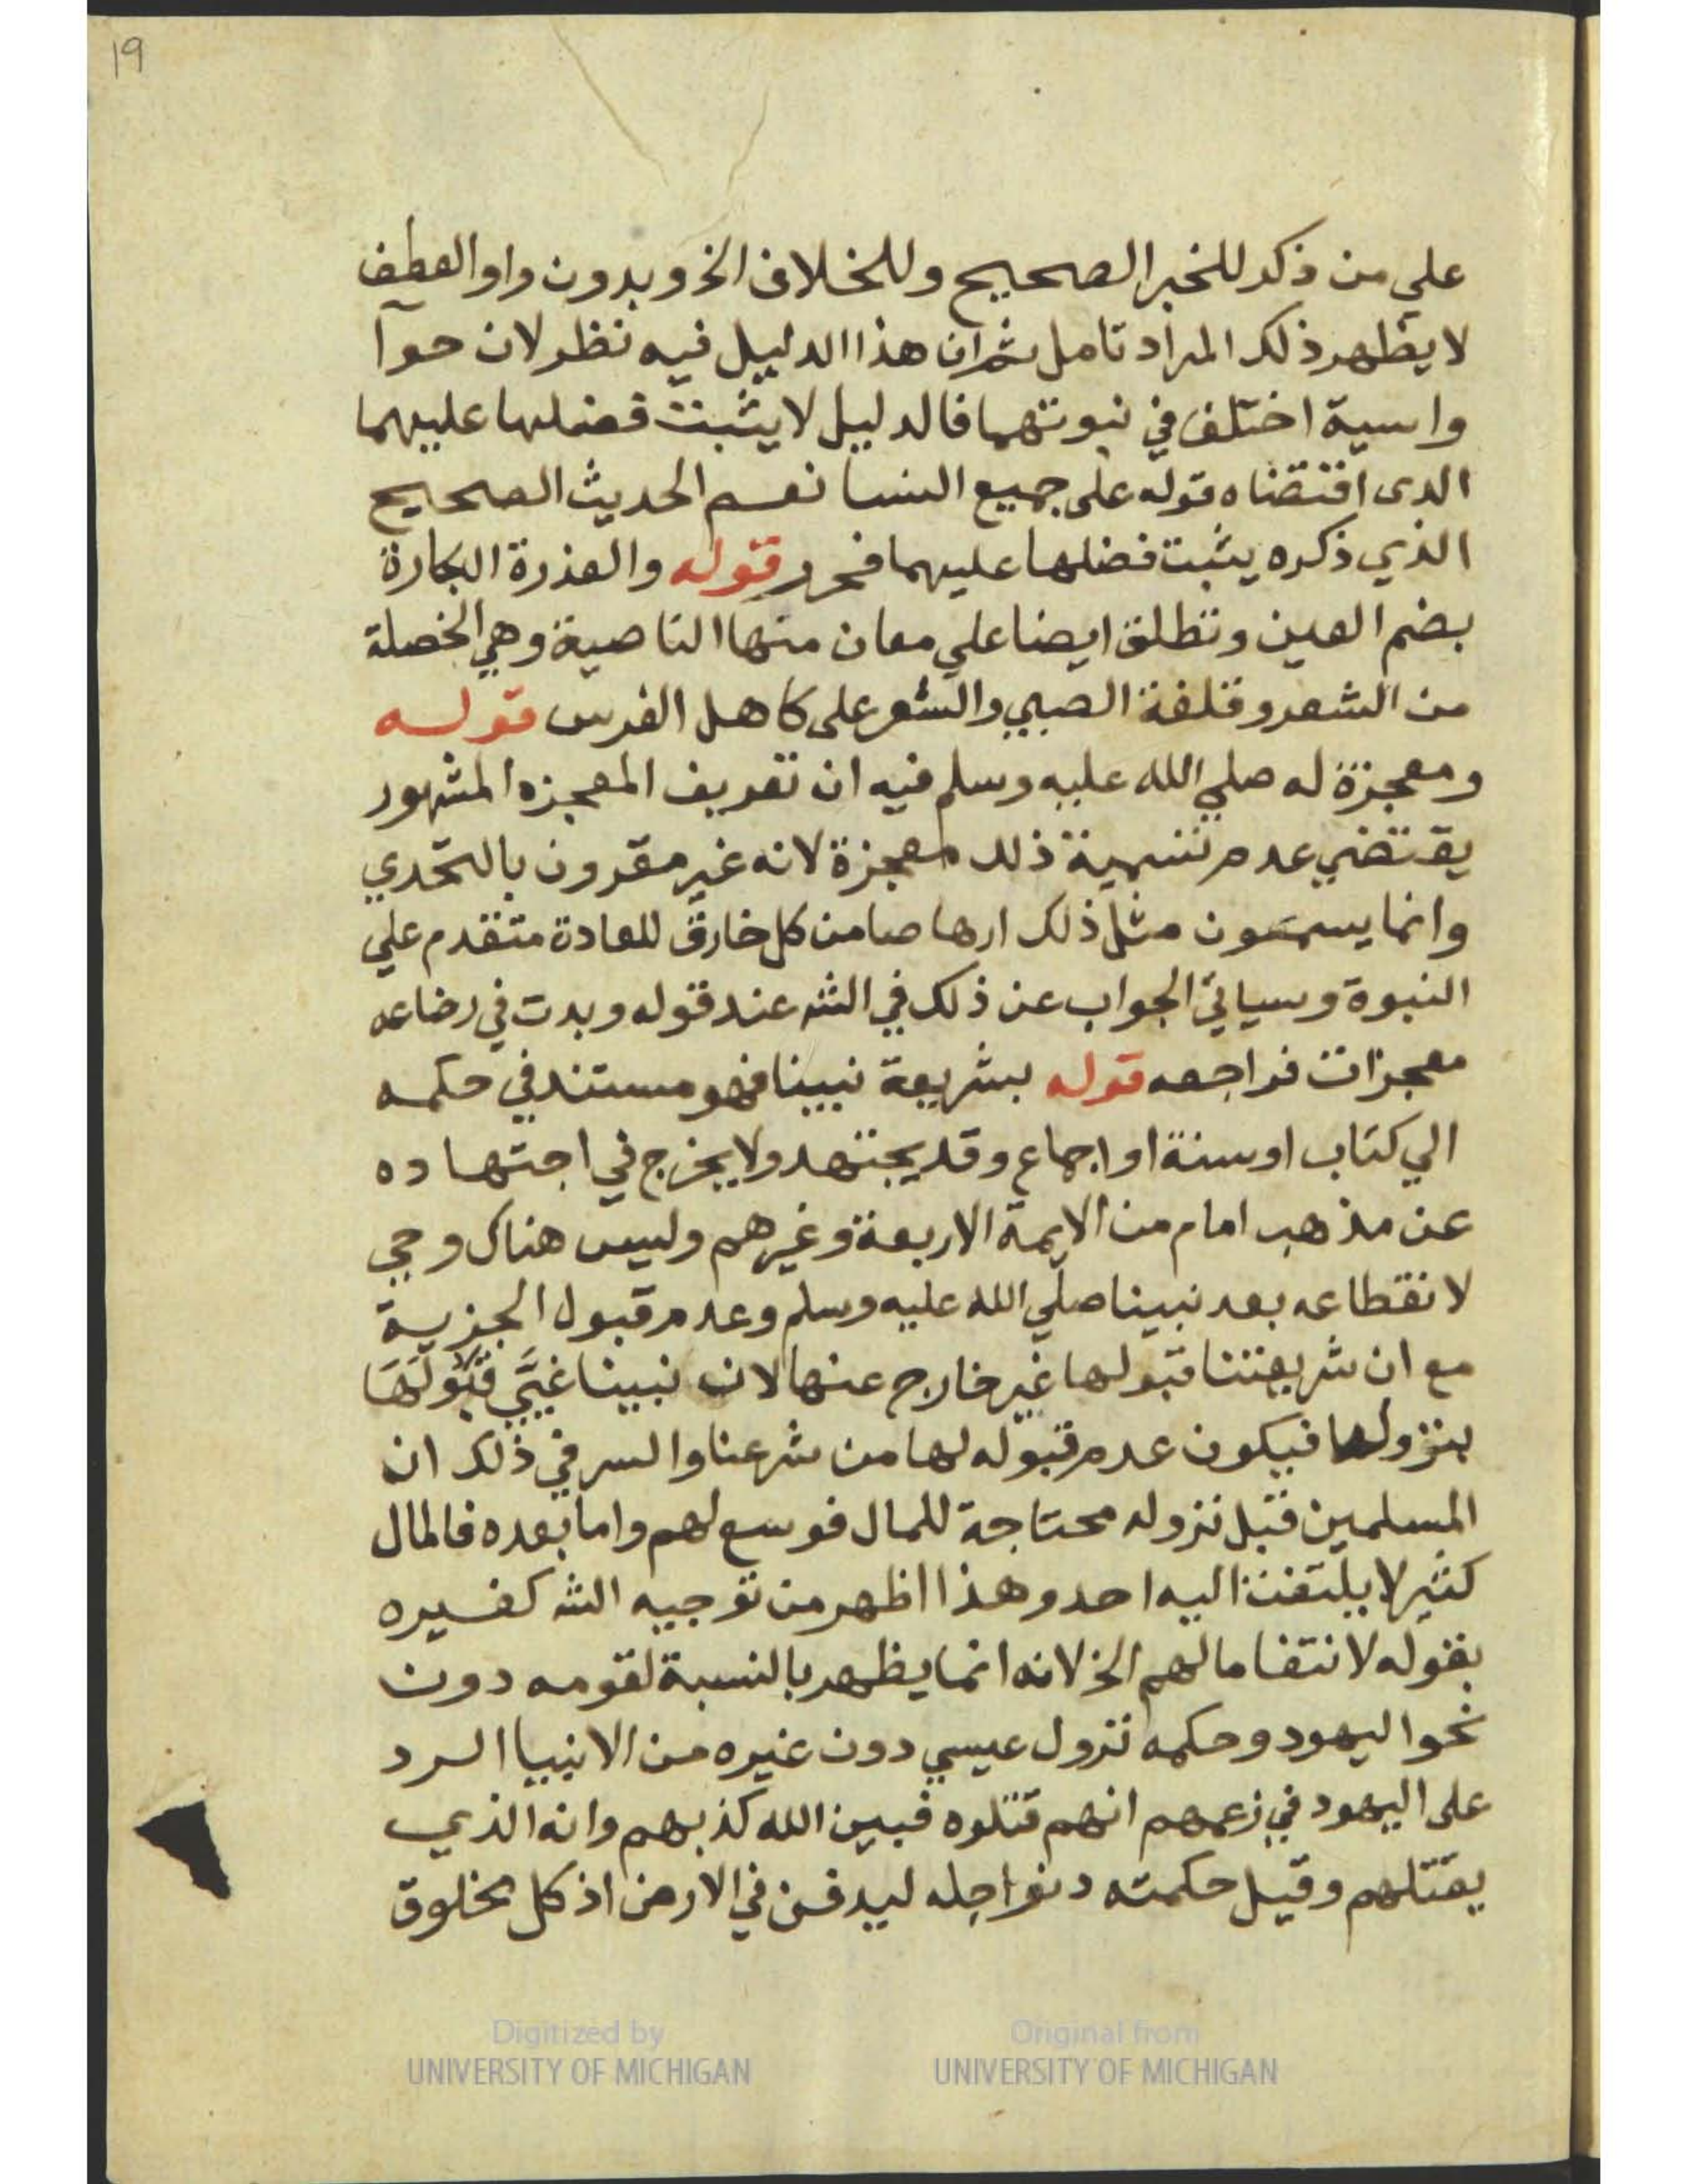 19
علي من ذكر للخبر الصحيح وللخلاف الخ وبدون واو العطف
لا يظهر ذلك المراد تامل ثم ان هذا الدليل فيه نظر لان حوآ
واسية اختلف في نبوتهما فالدليل لا يثبت فضلها عليهما
الدى اقتضاه قوله على جميع النسا نعم الحديث الصحيح
الذي ذكره يثبت فضلها عليهما فحرر قوله والعذرة البكارة
بضم العين وتطلق ايضا علي معان منها الناصية وهي الخصلة
من الشعر وقلفة الصبي والشعر على كاهل الفرس قوله
ومعجزة له صلي الله عليه وسلم فيه ان تعريف المعجزه المشهور
يقتضي عدم تسمية ذلك معجزة لانه غير مقرون بالتحدي
وانما يسمون مثل ذلك ارهاصا من كل خارق للعادة متقدم علي
النبوة وسياتي الجواب عن ذلك في الشه عند قوله وبدت في رضاعه
معجزات فراجعه قوله بشريعة نبينا فهو مستند في حكمه
الي كتاب او سنة او اجماع وقد يجتهد ولا يخرج في اجتهاده
عن مذهب امام من الايمة الاربعة وغيرهم وليس هناك وحي
لانقطاعه بعد نبينا صلي الله عليه وسلم وعدم قبول الجزية
مع ان شريعتنا قبولها غير خارج عنها لان نبينا غيَّي قبُولَهَا
بنزولها فيكون عدم قبوله لها من شرعنا والسر في ذلك ان
المسلمين قبل نزوله محتاجة للمال فوسع لهم واما بعده فالمال
كثير لا يلتفت اليه احد وهذا اظهر من توجيه الشه كغيره
بقوله لانتفا مالهم الخ لانه انما يظهر بالنسبة لقومه دون
نحو اليهود وحكمه نزول عيسي دون غيره من الانبيا الرد
على اليهود في زعمهم انهم قتلوه فبين الله كذبهم وانه الذي
يقتلهم وقيل حكمته دنو اجله ليدفن في الارض اذ كل مخلوق
Digitized by
UNIVERSITY OF MICHIGAN
Original from
UNIVERSITY OF MICHIGAN